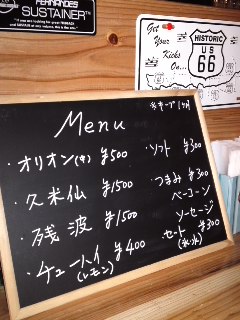 FERNANDES
SUSTAINER™
Get Your Kicks On...
HISTORIC
US
66
Menu
・オリオン(中) ¥500
・久米仙 ¥1500
・残波 ¥1500
・チューハイ ¥400
(レモン)
・ソフト ¥300
・つまみ ¥300
ベーコーン
ソーセージ
セット ¥300
(氷,水)